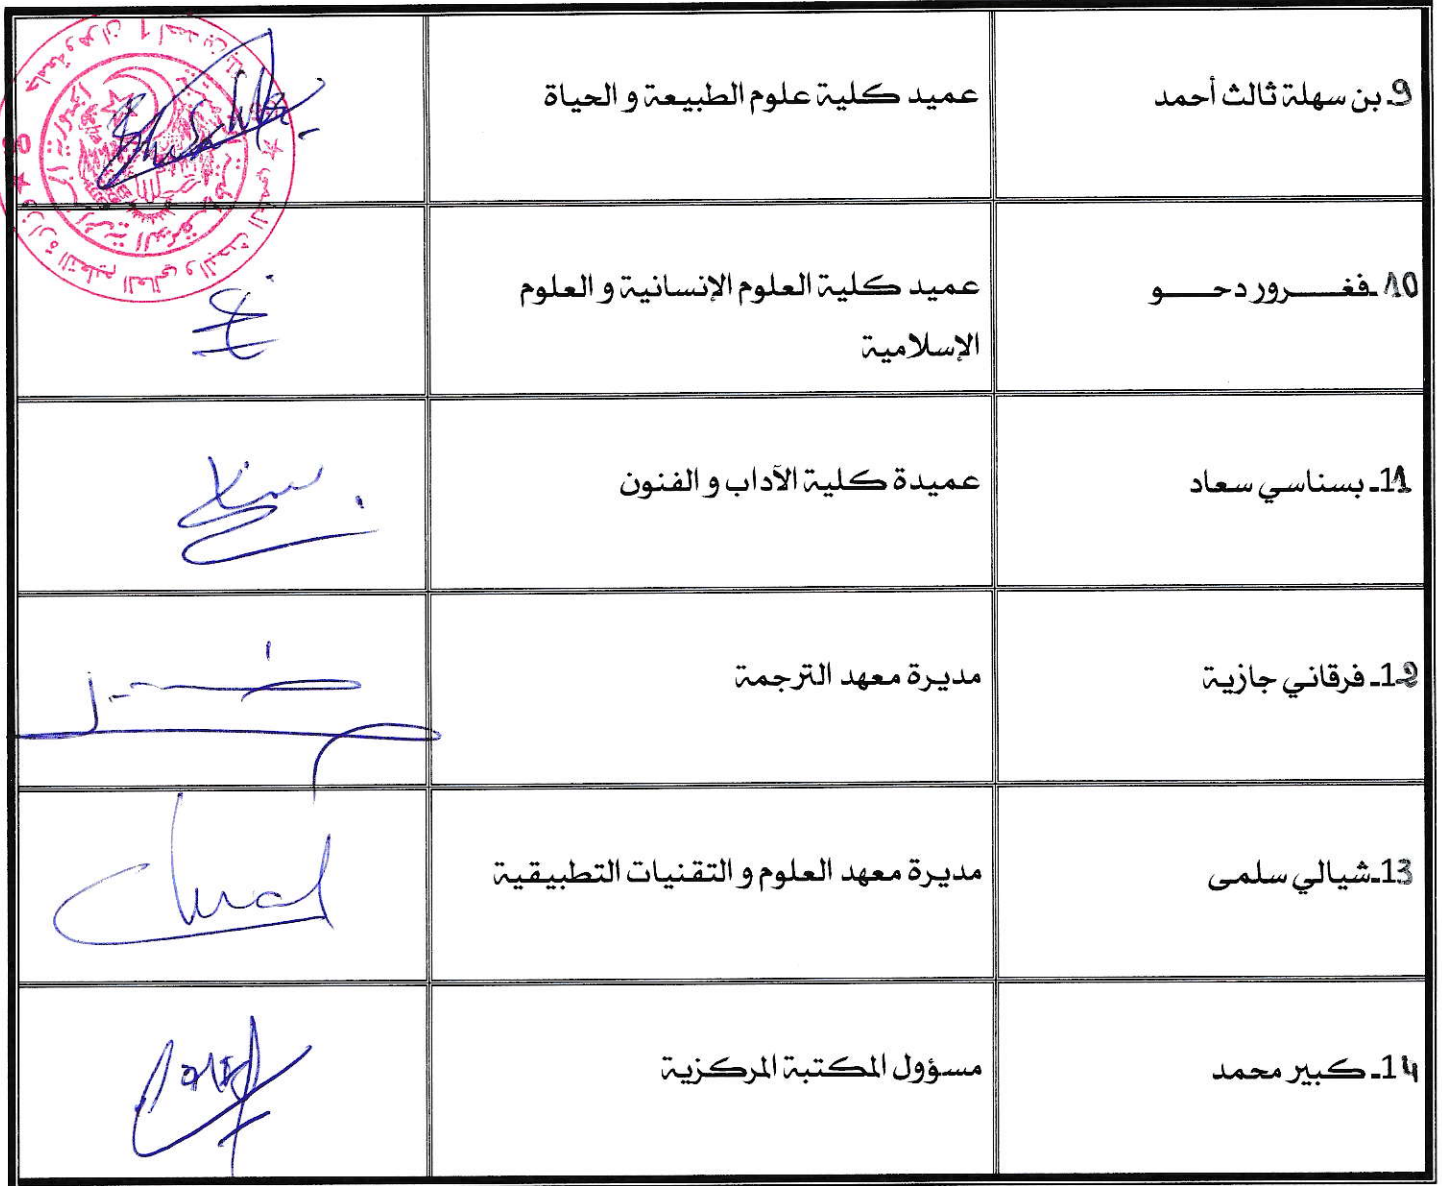 9ـ بن سهلة ثالث أحمد
عميد كلية علوم الطبيعة و الحياة
10ـ فغـــــرور دحـــــو
عميد كلية العلوم الإنسانية و العلوم
الإسلامية
11ـ بسناسي سعاد
عميدة كلية الآداب و الفنون
12ـ فرقاني جازية
مديرة معهد الترجمة
13ـشيالي سلمى
مديرة معهد العلوم و التقنيات التطبيقية
14ـ كبير محمد
مسؤول المكتبة المركزية
وزارة التعليم العالي والبحث العلمي
جامعة وهران 1 أحمد بن بلة